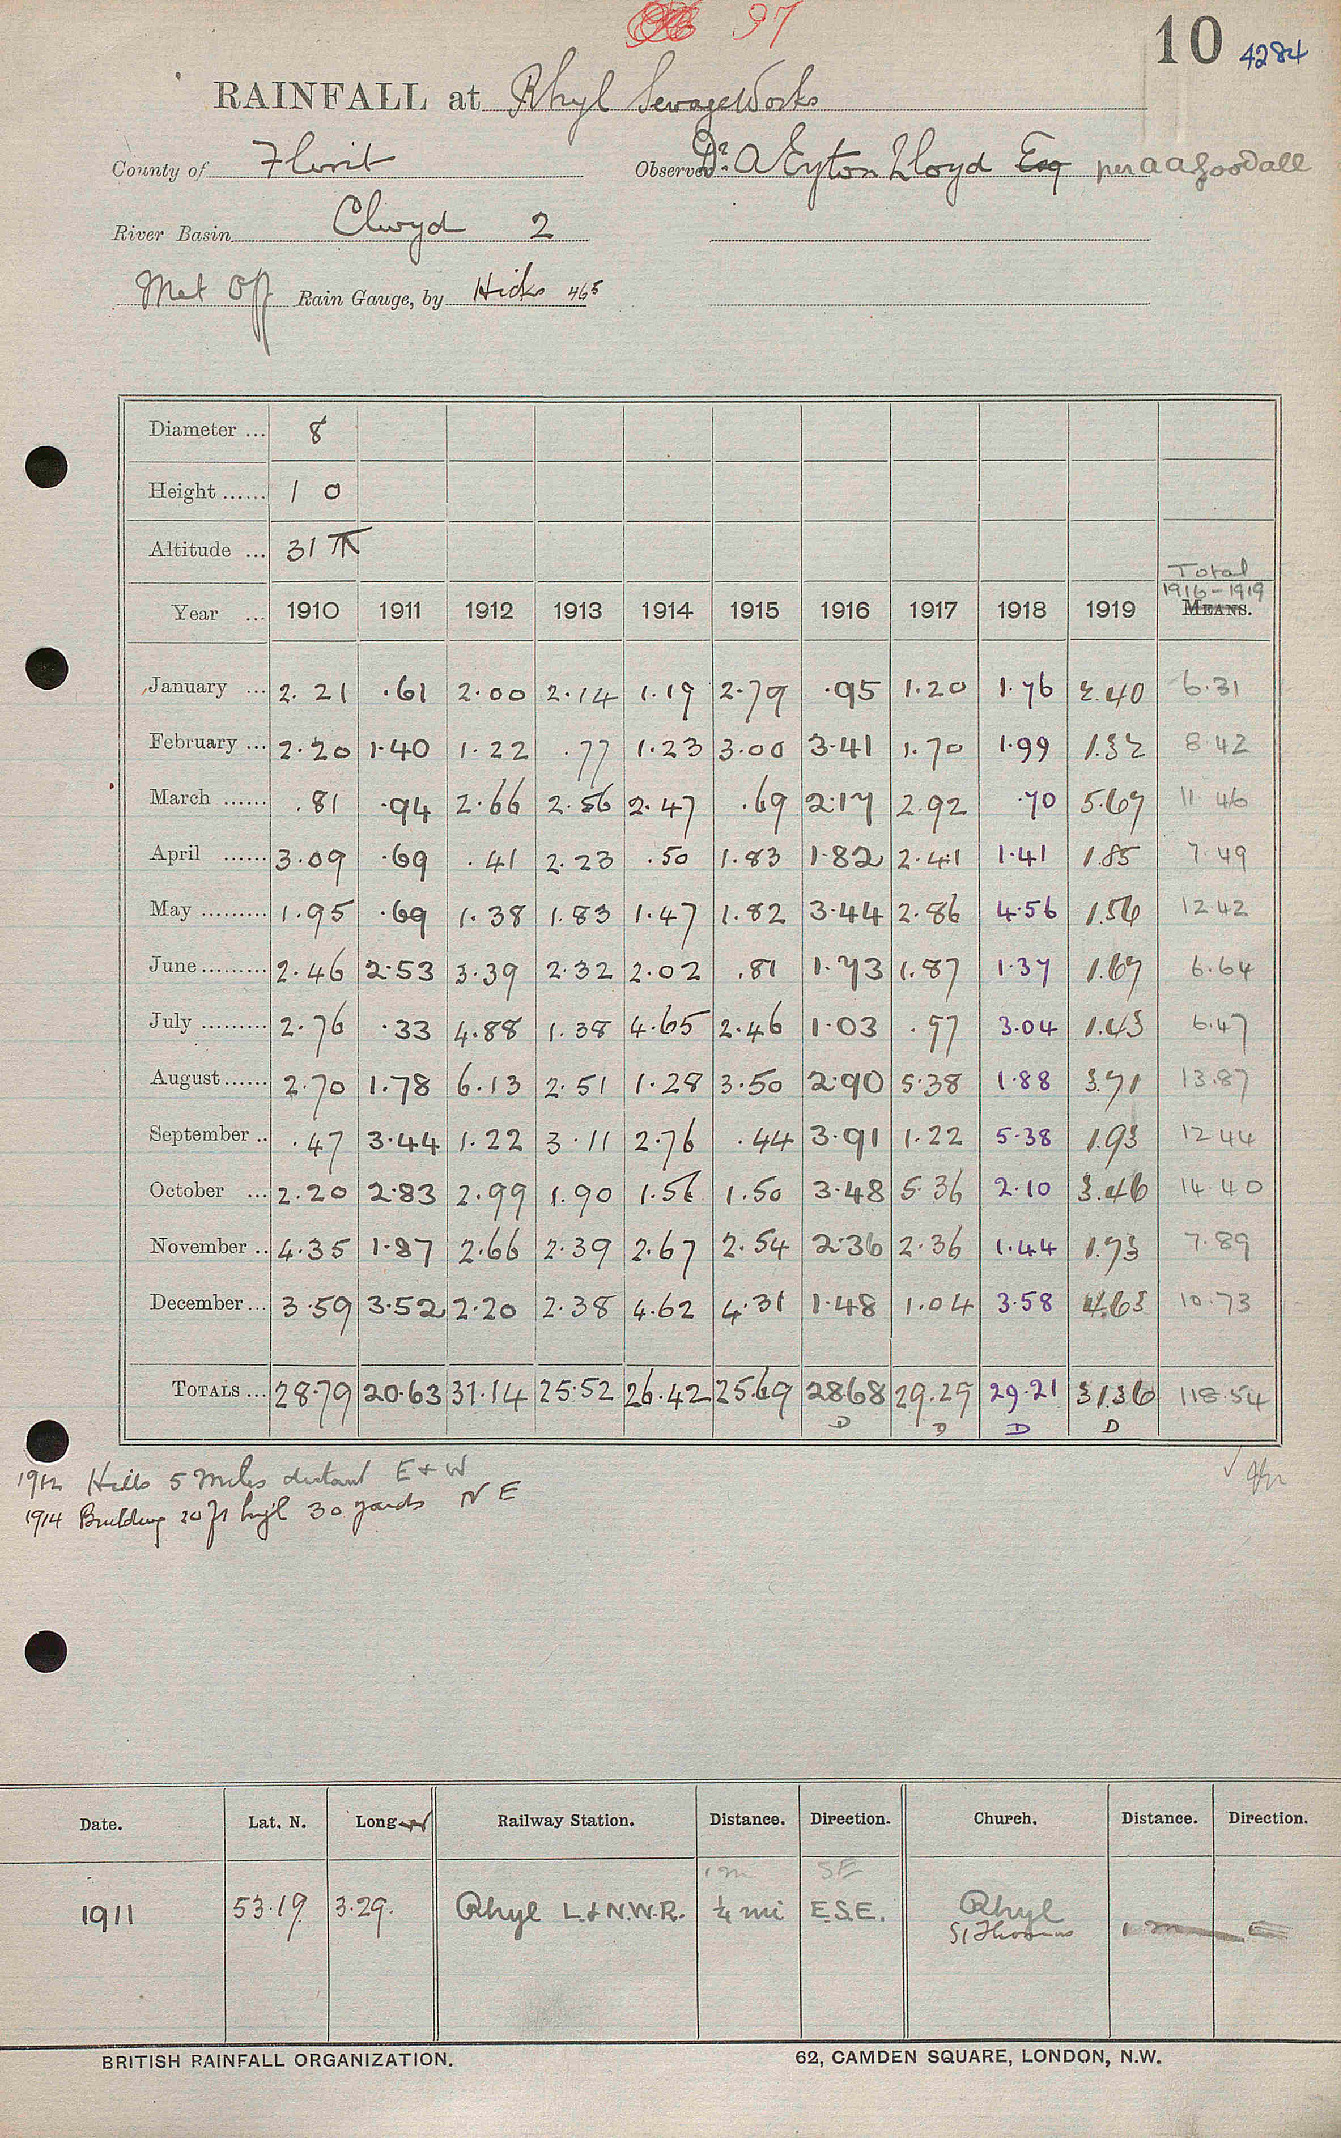 97
10 4284
RAINFALL at Rhyl Sewage Works
County of Flint Observer Dr. A Eyton Lloyd Esq per A A Goodall
River Basin Clwyd 2
Met Off Rain Gauge, by Hicks 465
Diameter ... 8
Height ...... 1 0
Altitude ... 31 ft
Total
1916-1919
Year ... 1910 1911 1912 1913 1914 1915 1916 1917 1918 1919 MEANS.
January ... 2.21 .61 2.00 2.14 1.19 2.79 .95 1.20 1.76 2.40 6.31
February ... 2.20 1.40 1.22 .77 1.23 3.00 3.41 1.70 1.99 1.32 8.42
March ...... .81 .94 2.66 2.56 2.47 .69 2.17 2.92 .70 5.67 11.46
April ...... 3.09 .69 .41 2.23 .50 1.83 1.82 2.41 1.41 1.85 7.49
May ......... 1.95 .69 1.38 1.83 1.47 1.82 3.44 2.86 4.56 1.56 12.42
June ......... 2.46 2.53 3.39 2.32 2.02 .81 1.73 1.87 1.37 1.67 6.64
July ......... 2.76 .33 4.88 1.38 4.65 2.46 1.03 .97 3.04 1.43 6.47
August ...... 2.70 1.78 6.13 2.51 1.28 3.50 2.90 5.38 1.88 3.71 13.87
September .. .47 3.44 1.22 3.11 2.76 .44 3.91 1.22 5.38 1.93 12.44
October ... 2.20 2.83 2.99 1.90 1.56 1.50 3.48 5.36 2.10 3.46 14.40
November .. 4.35 1.87 2.66 2.39 2.67 2.54 2.36 2.36 1.44 1.73 7.89
December ... 3.59 3.52 2.20 2.38 4.62 4.31 1.48 1.04 3.58 4.63 10.73
TOTALS ... 28.79 20.63 31.14 25.52 26.42 25.69 28.68 29.29 29.21 31.36 118.54
D D D D
1912 Hills 5 miles distant E & W
1914 Building 20 ft high 30 yards N E
Date. Lat. N. Long W Railway Station. Distance. Direction. Church. Distance. Direction.
1 m SE
1911 53.19 3.29. Rhyl L. & N.W.R. ¼ mi E.S.E. Rhyl
St Thomas 1 m E
BRITISH RAINFALL ORGANIZATION. 62, CAMDEN SQUARE, LONDON, N.W.